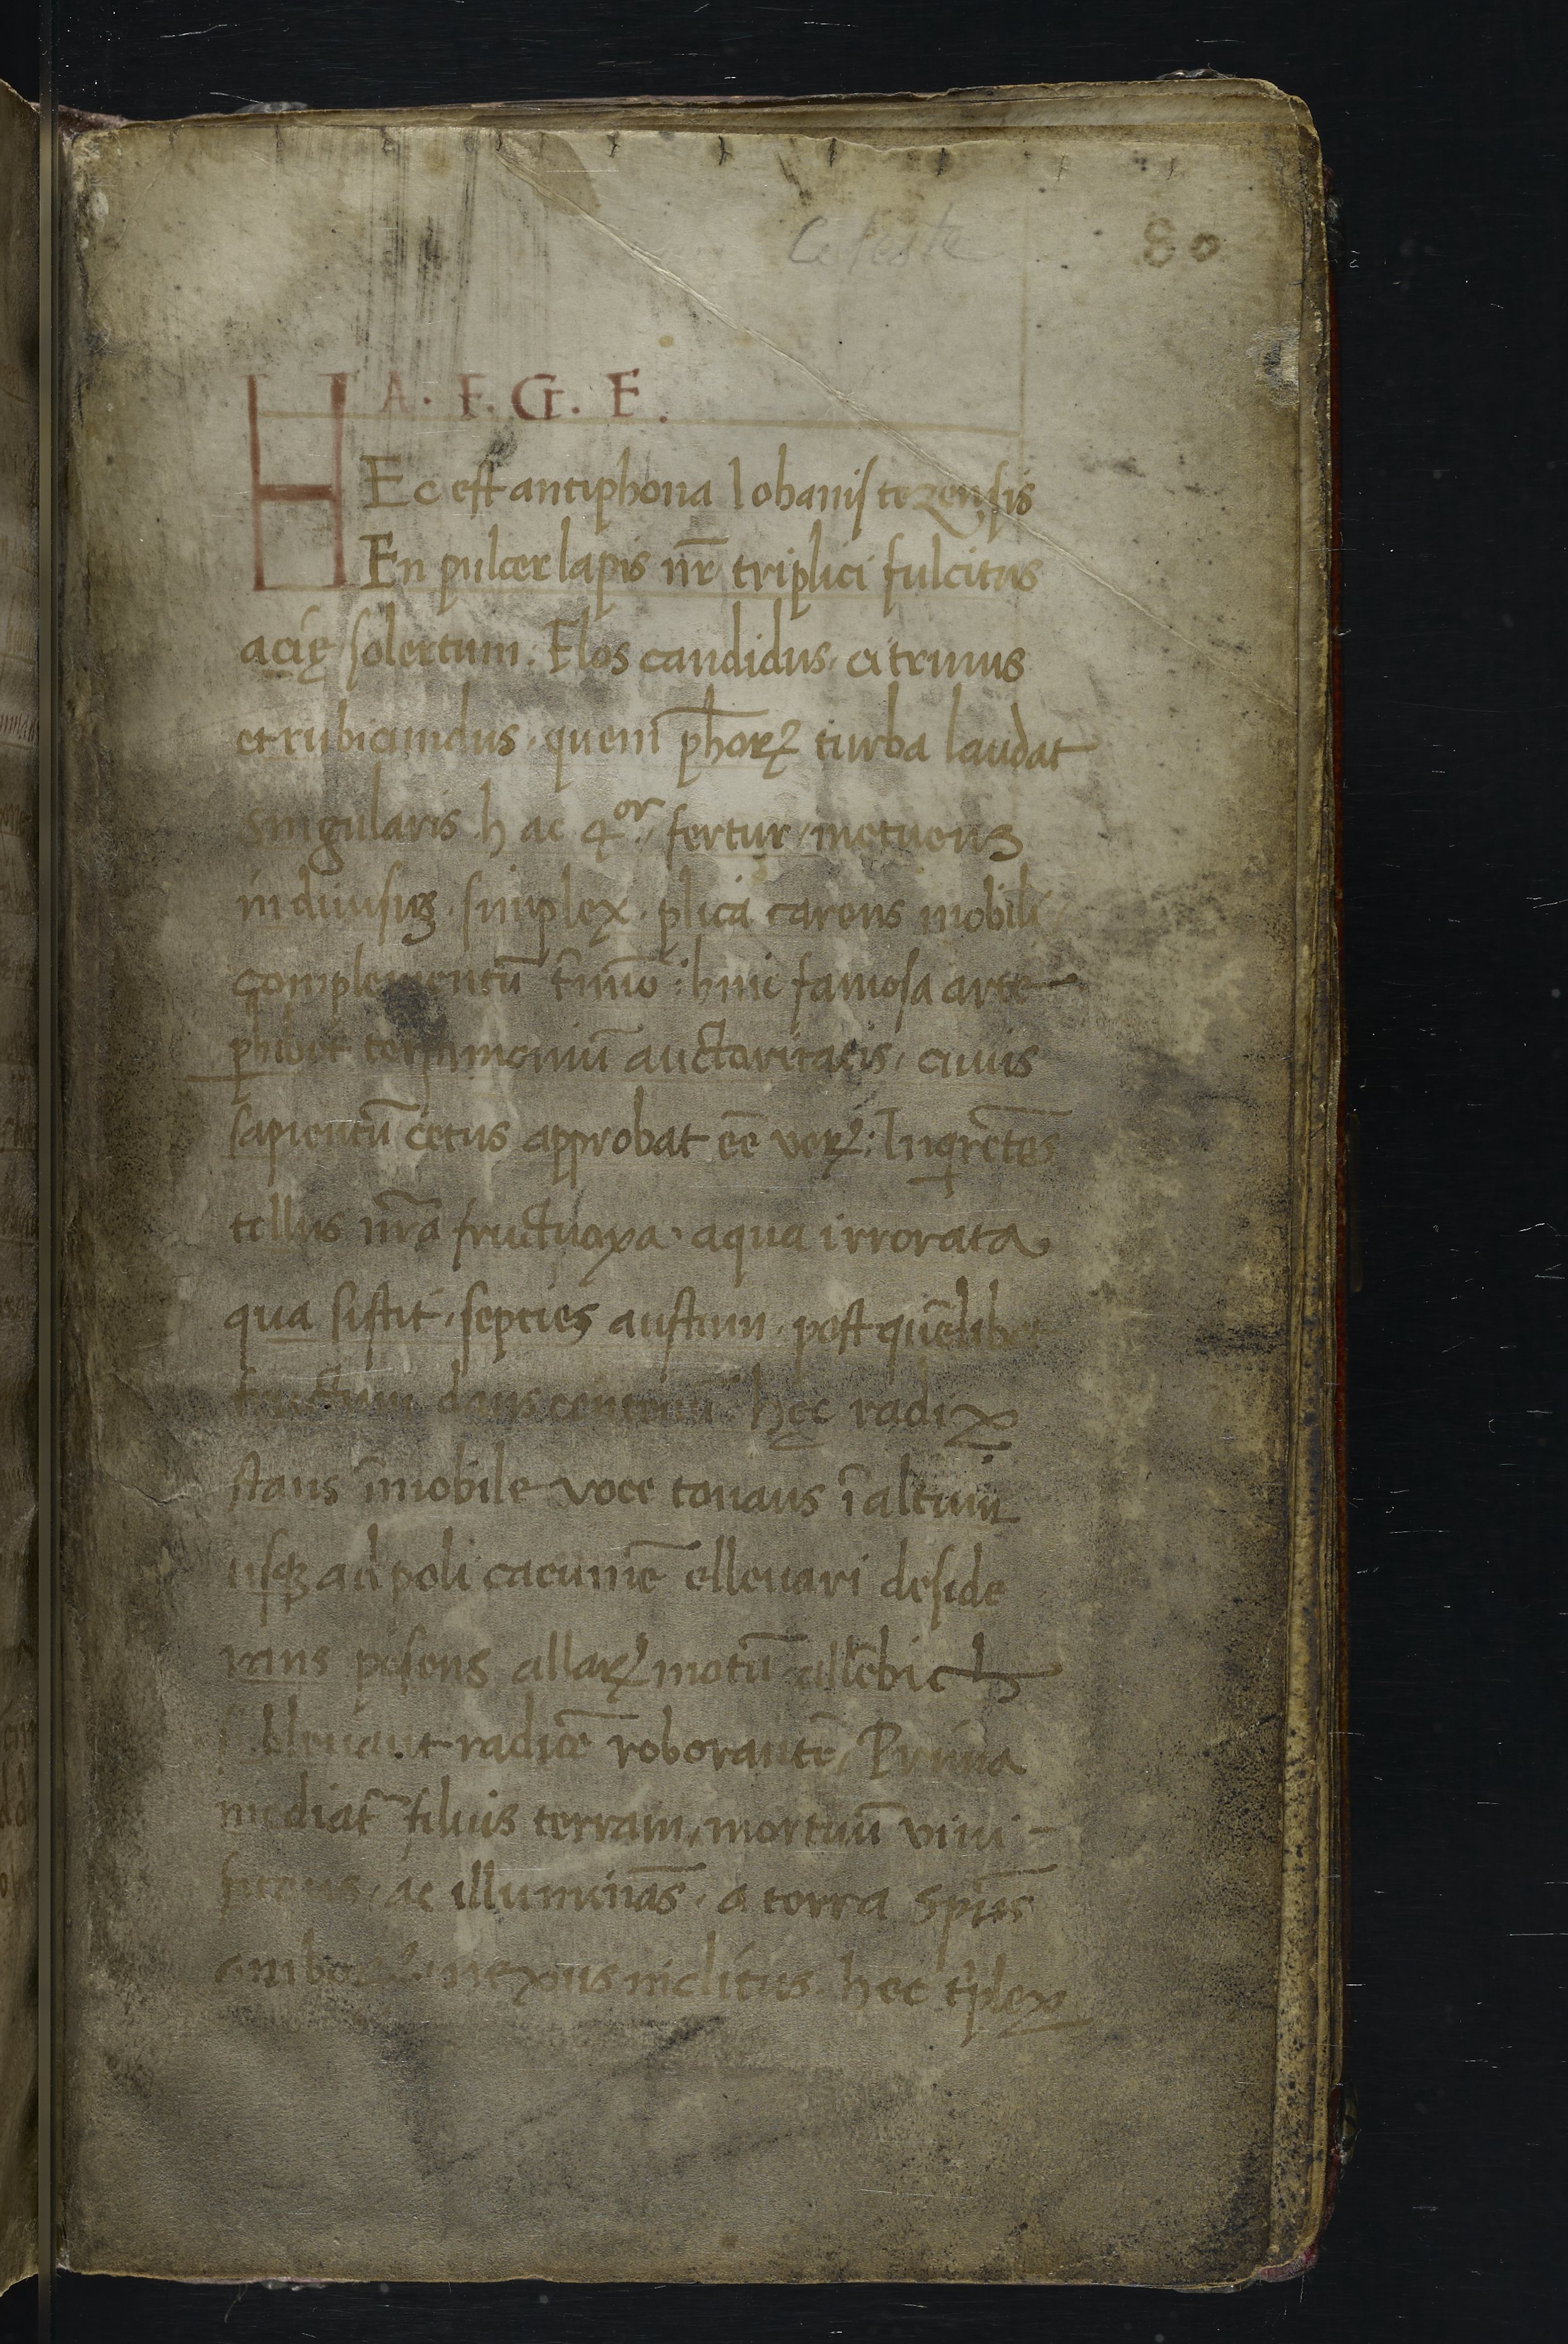 Celeste
80
H A. F. G. E.
Ec est antiphona Iohanis tezensis
En pulcer lapis nr̄ triplici fulcitus
acię solertum. Flos candidus. citrinus
et rubicundus. quem ph̄orꝝ turba laudat
singularis h ac 4or. fertur metuonꝫ
indiuisuꝫ. simplex. plica carens mobili
complementū t̄mino: hinc famosa arte
ꝓhibet testimoniū auctoritatis, cuius
sapientū cetus approbat eē verꝝ: Inqr̄entes
tellus nr̄a fructuoxa. aqua irrorata
qua sistit. septies austum. post quēlibet
fructum dans hęc radix
stans īmobile voce tonans ī altum
usqꝫ ad poli cacumē elleuari deside
rans pēsens allarꝝ motū
radicē roborantē, Prima
mediat filius terram, mortuū viui
ac illuminās. a terra Spūs
nexus inclitus. hec tͥplex